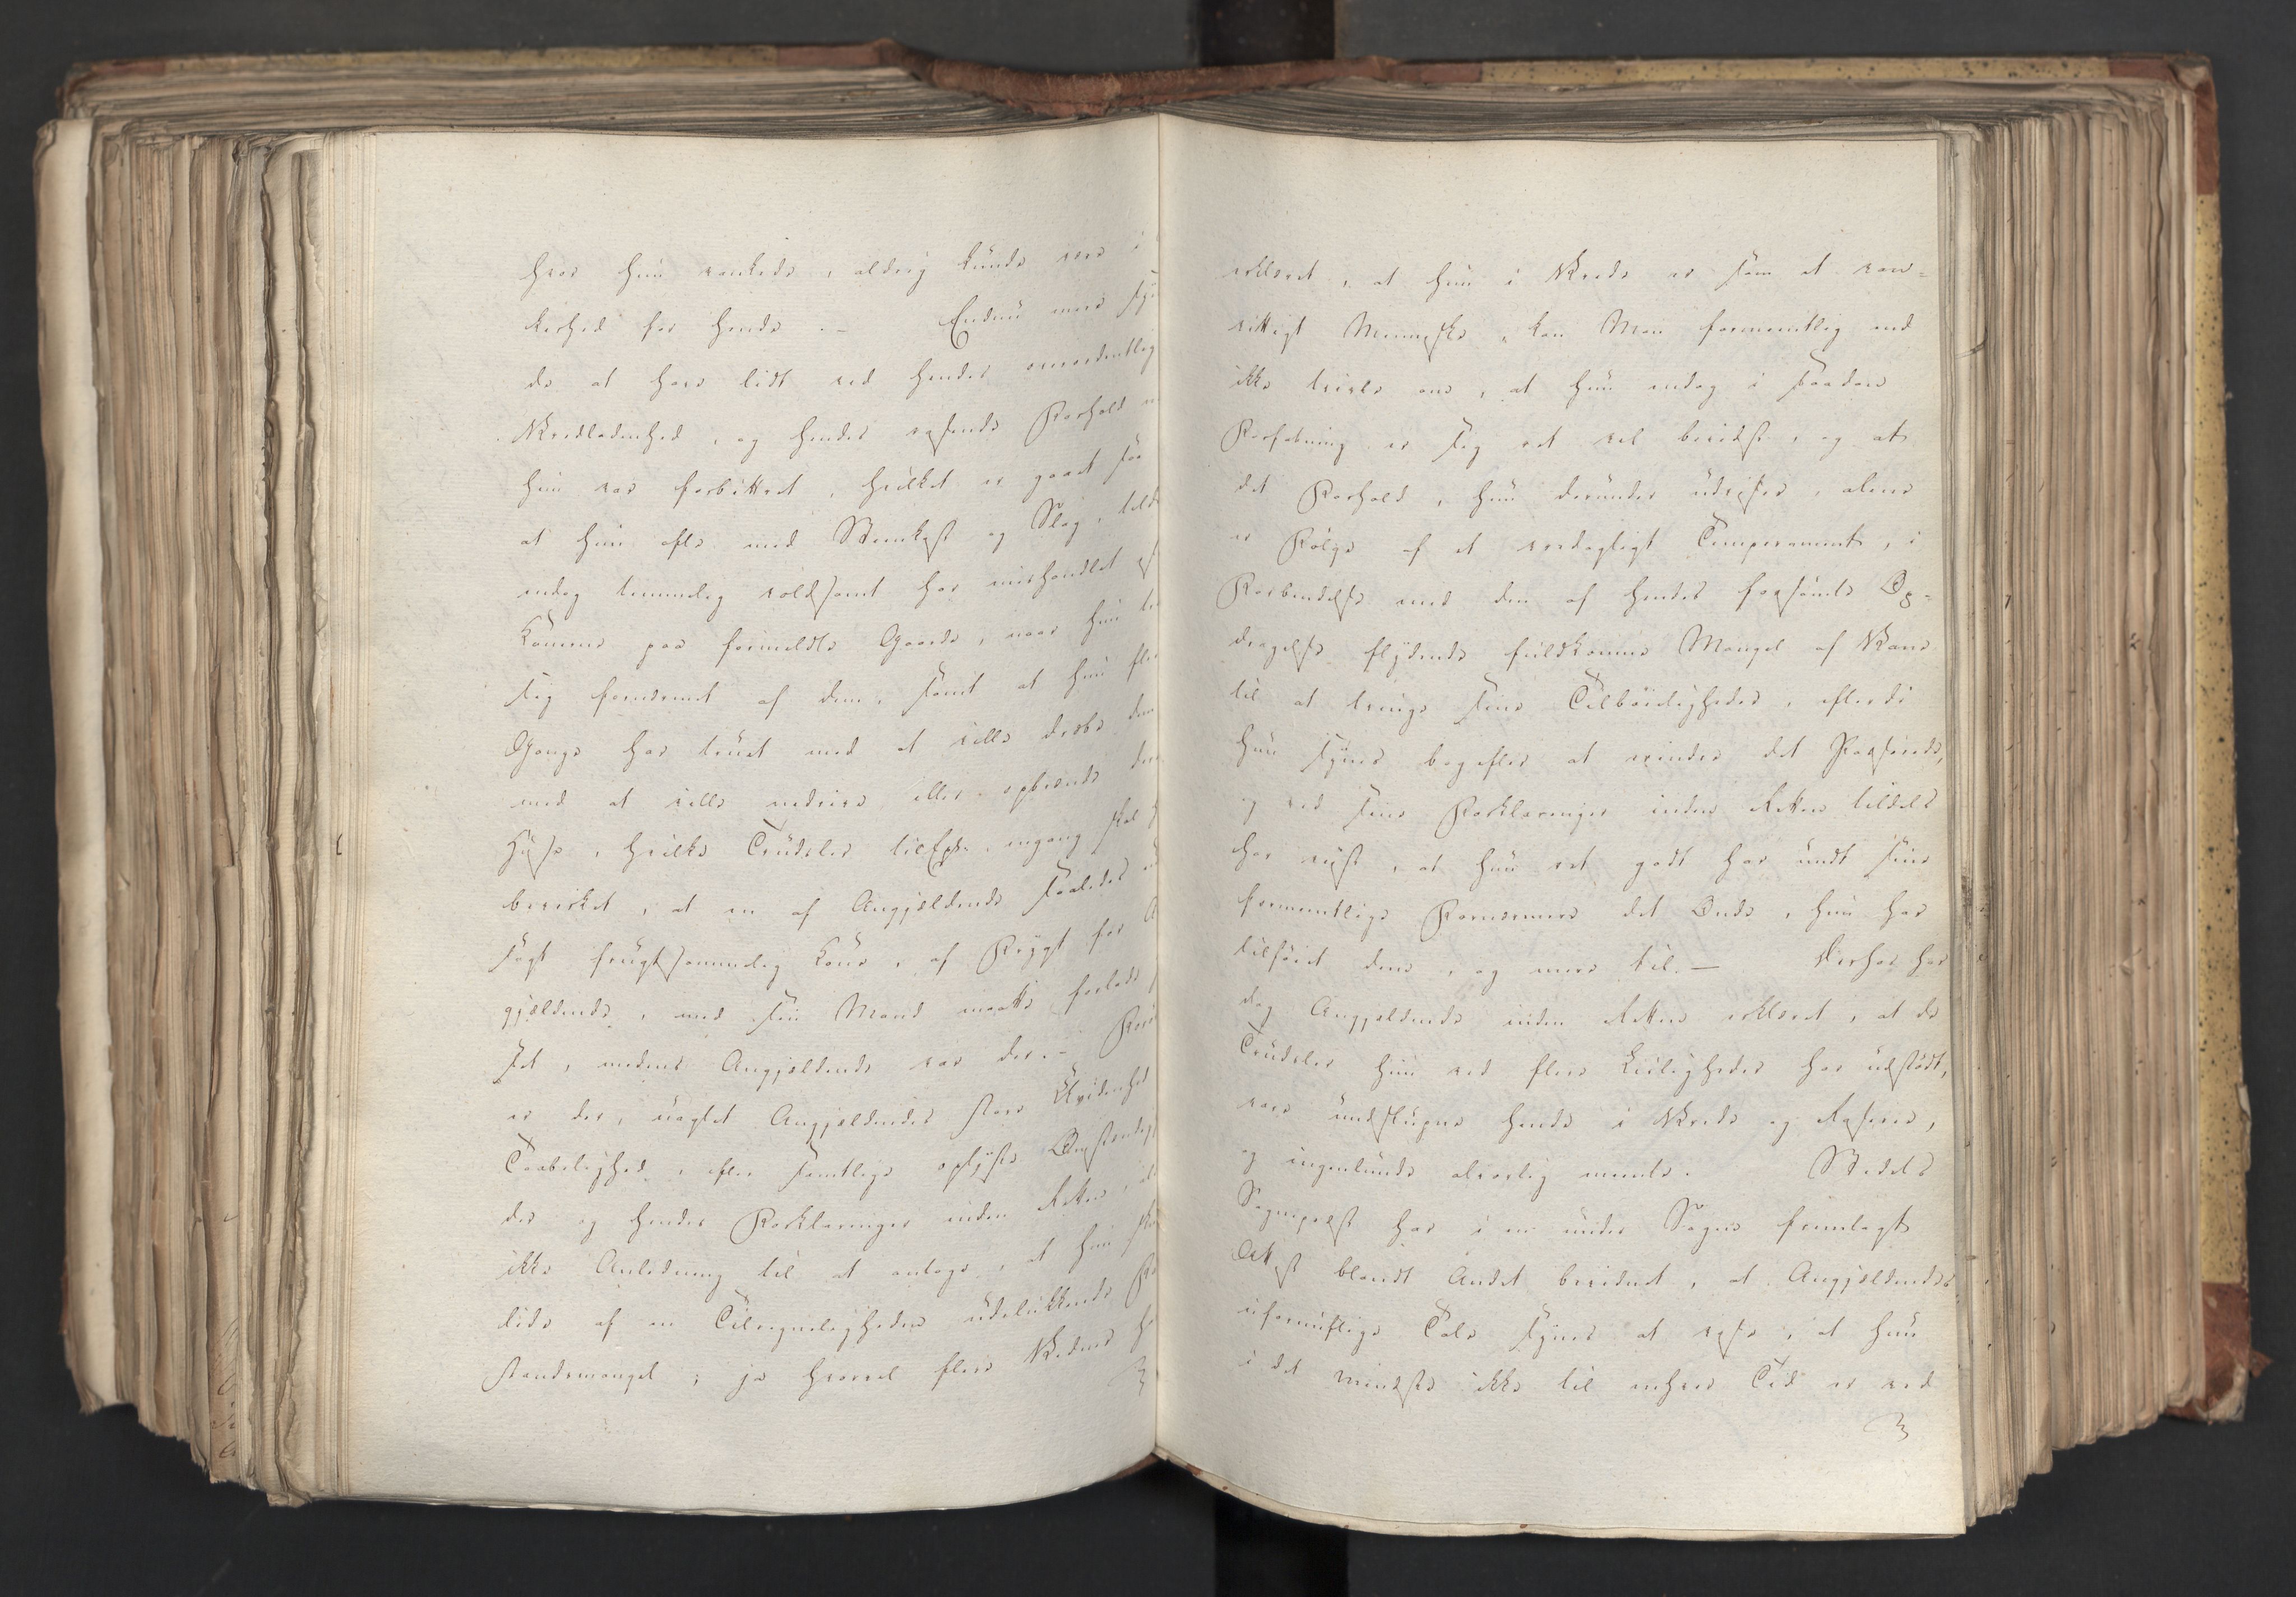 hvor hun vankede, aldrig kunde være i
kerhed for hende. – Endnu mere sy
de at have lidt ved hendes overordentlig
Vredladenhed, og hendes visende Forhold
hun var forbittret, hvilket er gaaet saa
at hun ofte med Steenkast og Slag, tild
endog temmelig voldsomt har mishandlet
Konerne paa formeldte Gaarde, naar hun
sig fornærmet af dem, samt at hun fle
Gange har truet med at ville dræbe dem
med at ville nedrive eller opbrænde
Huse, hvilke Trudsler til Expl: engang skal
bevirket, at en af Angjældende saaledes
søgt frugtsommelig Kone, af Frygt for A
gjældende, med sin Mand maatte forlade
set, medens Angjældende var der. –
er der, uagtet Angjældendes store Uvidenhed
Taabelighed, efter samtlige oplyste Omstændig
der og hendes Forklaringer inden Retten,
ikke Anledning til at antage, at hun
lide af en Tilregneligheden udelukkende
standsmangel; ja hvorvel flere Vidner
erklæret, at hun i Vrede er som et van-
vittigt Menneske, kan Man formeentlig end
ikke tvivle om, at hun endog i saadan
Forfatning er sig ret vel bevidst, og at
det Forhold, hun derunder udviser, alene
er Følge af et ondagtigt Temperament, i
Forbindelse med den af hendes forsømte Op-
dragelse flydende fuldkomne Mangel af Vane
til at tvinge sine Tilbøieligheder, efterdi
hun synes bagefter at erindre det Passerede,
og ved sine Forklaringer inden Retten tildels
har viist, at hun ret godt har undt sine
formeentlige Fornærmere det Onde, hun har
tilføiet dem, og mere til. – Derhos har
dog Angjældende inden Retten erklæret, at de
Trudsler hun ved flere Leiligheder har udstødt,
vare undslupne hende i Vrede og Raseri,
og ingenlunde alvorlig meente. Stedets
Sognepræst har i en under Sagen fremlagt
Attest blandt Andet bevidnet, at Angjældendes
ufornuftige Tale synes at vise, at hun
i det mindste ikke til enhver Tid er ved